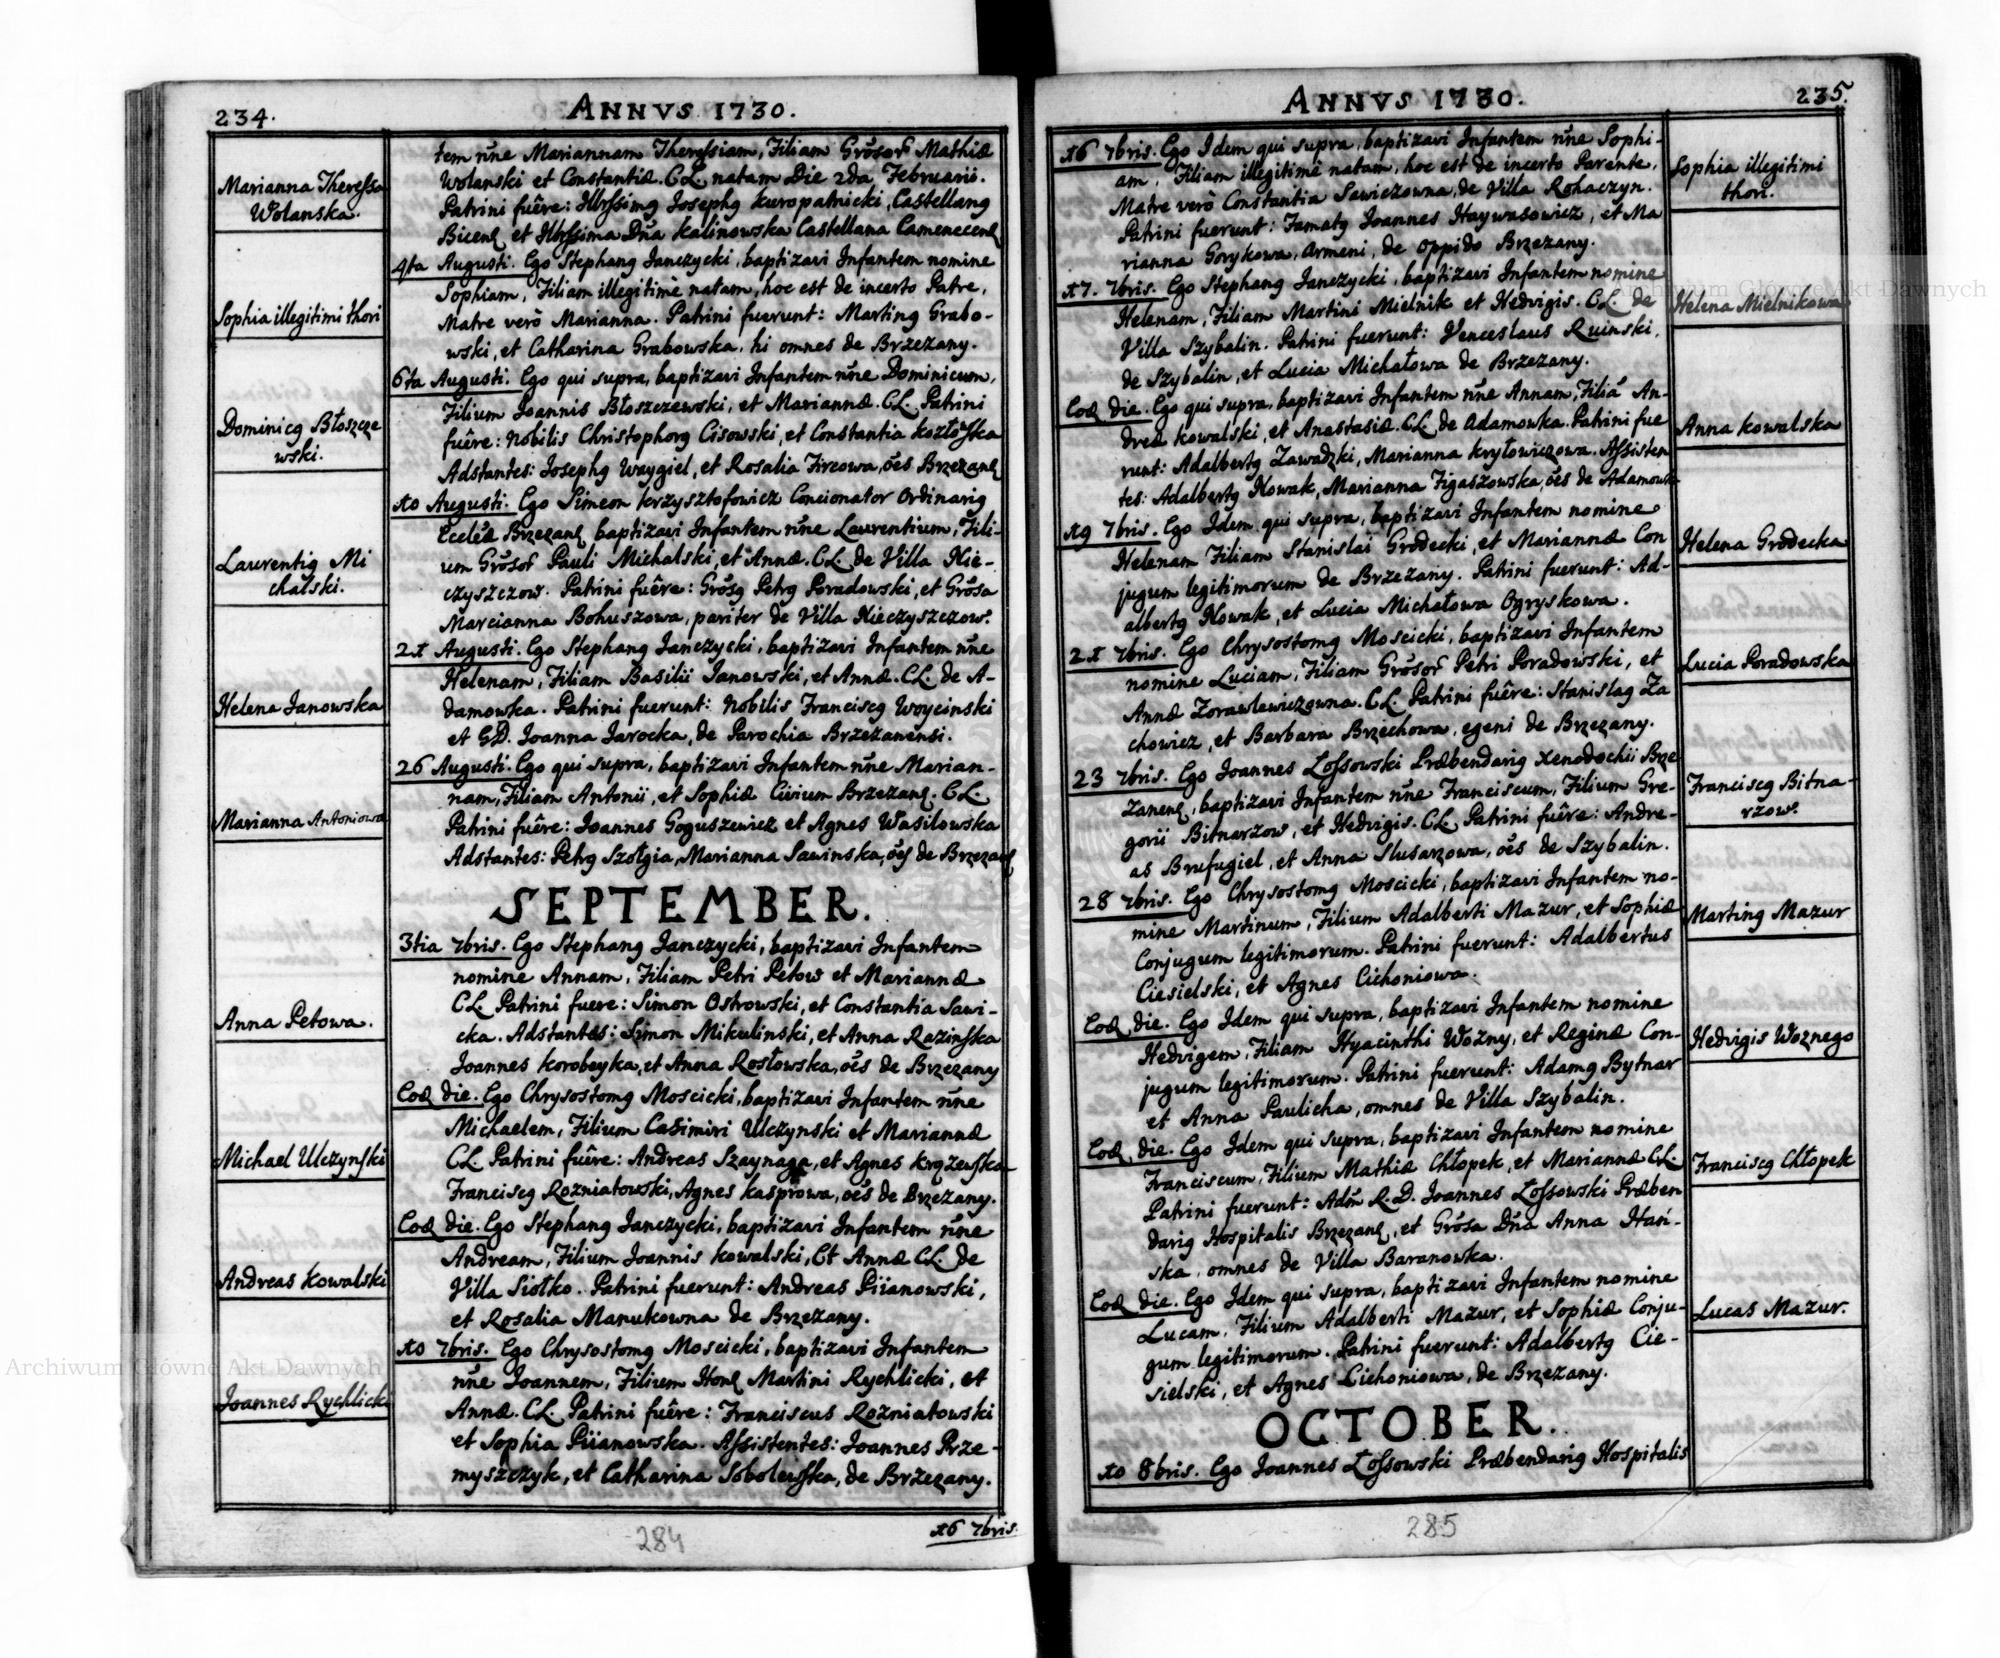 234.
ANNVS 1730.
Marianna Theressa
Wolanska.
Sophia illegitimi thori
Dominicq Błoszcze
wski.
Laurentiq Mi
chalski.
Helena Janowska
Marianna Antoniowa
Anna Petowa.
Michael Ulczynski
Andreas Kowalski
Joannes Rychlicki
tem nne Mariannam Theressiam, Filiam Grosor Mathiæ
Wolanski et Constantiæ. CL. natam Die 2da Februarii.
Patrini fuêre: Illrssimq Josephq Kuropatnicki, Castellanq
Bicenę et Illrssima Dna Kalinowska Castellana Camenecenę
4ta Augusti. Ego Stephanq Janczycki, baptizavi Infantem nomine
Sophiam, Filiam illegitimè natam, hoc est de incerto Patre,
Matre verò Marianna. Patrini fuerunt: Martinq Grabo-
wski, et Catharina Grabowska, hi omnes de Brzezany.
6ta Augusti. Ego qui supra, baptizavi Infantem nne Dominicum,
Filium Joannis Błoszczewski, et Mariannæ. CL. Patrini
fuêre: Nobilis Christophorq Cisowski, et Constantia Kozłowska
Adstantes: Josephq Waygiel, et Rosalia Fircowa, oes Brzezanę
10 Augusti. Ego Simeon Krzysztofowicz Concionator Ordinariq
Eccleæ Brzezanę baptizavi Infantem nne Laurentium, Fili-
um Grosor Pauli Michalski, et Annæ. CL. de Villa Nie-
czyszczow. Patrini fuêre: Grosq Petrq Poradowski, et Grosa
Marcianna Bohuszowa, pariter de Villa Nieczyszczow.
21 Augusti. Ego Stephanq Janczycki, baptizavi Infantem nne
Helenam, Filiam Basilii Janowski, et Annæ. CL. de A-
damowka. Patrini fuerunt: Nobilis Franciscq Woycinski
et GD. Joanna Jarocka, de Parochia Brzezanensi.
26 Augusti. Ego qui supra, baptizavi Infantem nne Marian-
nam, Filiam Antonii, et Sophiæ Civium Brzezanę. CL
Patrini fuêre: Joannes Goguszewicz et Agnes Wasilowska
Adstantes: Petrq Szołgia, Marianna Sawinska, oes de Brzezanę
SEPTEMBER.
3tia 7bris. Ego Stephanq Janczycki, baptizavi Infantem
nomine Annam, Filiam Petri Petow et Mariannæ
CL. Patrini fuere: Simon Ostrowski, et Constantia Sawi-
cka. Adstantes: Simon Mikulinski, et Anna Razinska
Joannes Korobeyka, et Anna Rosłowska, oes de Brzezany
Eoę die. Ego Chrysostomq Moscicki, baptizavi Infantem nne
Michaelem, Filium Casimiri Ulczynski et Mariannæ
CL. Patrini fuêre: Andreas Szaynaga, et Agnes Krązewska
Franciscq Rozniatowski, Agnes Kasprowa, oes de Brzezany.
Eoę die. Ego Stephanq Janczycki, baptizavi Infantem nne
Andream, Filium Joannis Kowalski, Et Annæ CL. de
Villa Siołko. Patrini fuerunt: Andreas Piianowski,
et Rosalia Manukowna de Brzezany.
10 7bris. Ego Chrysostomq Moscicki, baptizavi Infantem
nne Joannem, Filium Honę Martini Rychlicki, et
Annæ. CL. Patrini fuêre: Franciscus Rozniatowski
et Sophia Piianowska. Assistentes: Joannes Prze-
myszczyk, et Catharina Sobolewska, de Brzezany.
16 7bris.
284
ANNVS 1730.
235.
16 7bris. Ego Idem qui supra, baptizavi Infantem nne Sophi-
am, Filiam illegitimè natam, hoc est de incerto Parente,
Matre verò Constantia Sawiczowna, de Villa Rohaczyn.
Patrini fuerunt: Famatq Joannes Haywasowicz, et Ma
rianna Gorykowa, Armeni, de Oppido Brzezany.
17. 7bris. Ego Stephanq Janczycki, baptizavi Infantem nomine
Helenam, Filiam Martini Mielnik et Hedvigis. CL. de
Villa Szybalin. Patrini fuerunt: Venceslaus Ruinski,
de Szybalin, et Lucia Michałowa de Brzezany.
Eoę die. Ego qui supra, baptizavi Infantem nne Annam, Filiã An-
dreæ Kowalski, et Anastasiæ. CL. de Adamowka. Patrini fue
runt: Adalbertq Zawadzki, Marianna Kryłowiczowa. Assisten
tes: Adalbertq Nowak, Marianna Figaszowska, oes de Adamowk
19 7bris. Ego Idem qui supra, baptizavi Infantem nomine
Helenam Filiam Stanislai Grodecki, et Mariannæ Con
jugum legitimorum de Brzezany. Patrini fuerunt: Ad-
albertq Nowak, et Lucia Michałowa Ogryskowa.
21 7bris. Ego Chrysostomq Moscicki, baptizavi Infantem
nomine Luciam, Filiam Grosor Petri Poradowski, et
Annæ Zorawlewiczowna. CL. Patrini fuêre: Stanislaq Za
chowicz, et Barbara Brzechowa, egeni de Brzezany.
23 7bris. Ego Joannes Lossowski Præbendariq Xenodochii Brze
zanenę, baptizavi Infantem nne Franciscum, Filium Gre-
gorii Bitnarzow, et Hedvigis. CL. Patrini fuêre: Andre-
as Brufugiel, et Anna Slusarzowa, oes de Szybalin.
28 7bris. Ego Chrysostomq Moscicki, baptizavi Infantem no-
mine Martinum, Filium Adalberti Mazur, et Sophiæ
Conjugum legitimorum. Patrini fuerunt: Adalbertus
Ciesielski, et Agnes Cichoniowa.
Eoę die. Ego Idem qui supra, baptizavi Infantem nomine
Hedvigem, Filiam Hyacinthi Wozny, et Reginæ Con-
jugum legitimorum. Patrini fuerunt: Adamq Bytnar
et Anna Paulicha, omnes de Villa Szybalin.
Eoę die. Ego Idem qui supra, baptizavi Infantem nomine
Franciscum, Filium Mathiæ Chłopek, et Mariannæ CL.
Patrini fuerunt: Adm R.D. Joannes Lossowski Præben
dariq Hospitalis Brzezanę, et Grosa Dna Anna Hań-
ska, omnes de Villa Baranowka.
Eoę die. Ego Idem qui supra, baptizavi Infantem nomine
Lucam, Filium Adalberti Mazur, et Sophiæ Conju-
gum legitimorum. Patrini fuerunt: Adalbertq Cie-
sielski, et Agnes Cichoniowa, de Brzezany.
OCTOBER.
10 8bris. Ego Joannes Lossowski Præbendariq Hospitalis
Sophia illegitimi
thori.
Helena Mielnikowa
Anna Kowalska
Helena Grodecka
Lucia Poradowska
Franciscq Bitna-
rzow.
Martinq Mazur
Hedvigis Woznego
Franciscq Chłopek
Lucas Mazur.
285
Archiwum Główne Akt Dawnych
Archiwum Główne Akt Dawnych